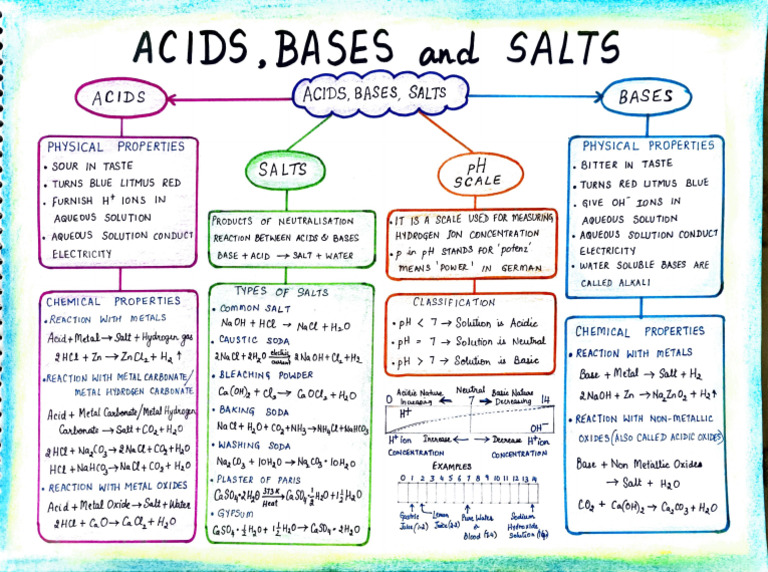 ACIDS, BASES and SALTS
ACIDS, BASES, SALTS
ACIDS
PHYSICAL PROPERTIES
• SOUR IN TASTE
• TURNS BLUE LITMUS RED
• FURNISH H⁺ IONS IN
AQUEOUS SOLUTION
• AQUEOUS SOLUTION CONDUCT
ELECTRICITY
CHEMICAL PROPERTIES
• REACTION WITH METALS
Acid + Metal → Salt + Hydrogen gas
2HCl + Zn → ZnCl₂ + H₂ ↑
• REACTION WITH METAL CARBONATE/
METAL HYDROGEN CARBONATE
Acid + Metal Carbonate/Metal Hydrogen
Carbonate → Salt + CO₂ + H₂O
2HCl + Na₂CO₃ → 2NaCl + CO₂ + H₂O
HCl + NaHCO₃ → NaCl + CO₂ + H₂O
• REACTION WITH METAL OXIDES
Acid + Metal Oxide → Salt + Water
2HCl + CaO → CaCl₂ + H₂O
SALTS
PRODUCTS OF NEUTRALISATION
REACTION BETWEEN ACIDS & BASES
BASE + ACID → SALT + WATER
TYPES OF SALTS
• COMMON SALT
NaOH + HCl → NaCl + H₂O
• CAUSTIC SODA
2NaCl + 2H₂O electric current → 2NaOH + Cl₂ + H₂
• BLEACHING POWDER
Ca(OH)₂ + Cl₂ → CaOCl₂ + H₂O
• BAKING SODA
NaCl + H₂O + CO₂ + NH₃ → NH₄Cl + NaHCO₃
• WASHING SODA
Na₂CO₃ + 10H₂O → Na₂CO₃·10H₂O
• PLASTER OF PARIS
CaSO₄·2H₂O 373K Heat → CaSO₄·½H₂O + 1½H₂O
• GYPSUM
CaSO₄·½H₂O + 1½H₂O → CaSO₄·2H₂O
pH
SCALE
• IT IS A SCALE USED FOR MEASURING
HYDROGEN ION CONCENTRATION
• p in pH STANDS FOR 'potenz'
MEANS 'POWER' IN GERMAN
CLASSIFICATION
• pH < 7 → Solution is Acidic
• pH = 7 → Solution is Neutral
• pH > 7 → Solution is Basic
Acidic Nature Neutral Basic Nature
0 Increasing ← 7 → Decreasing 14
H⁺
OH⁻
H⁺ ion Increase ← → Decrease H⁺ ion
CONCENTRATION CONCENTRATION
EXAMPLES
0 1 2 3 4 5 6 7 8 9 10 11 12 13 14
Gastric Lemon Pure Water Sodium
Juice Juice Hydroxide
Blood Solution
BASES
PHYSICAL PROPERTIES
• BITTER IN TASTE
• TURNS RED LITMUS BLUE
• GIVE OH⁻ IONS IN
AQUEOUS SOLUTION
• AQUEOUS SOLUTION CONDUCT
ELECTRICITY
• WATER SOLUBLE BASES ARE
CALLED ALKALI
CHEMICAL PROPERTIES
• REACTION WITH METALS
Base + Metal → Salt + H₂
2NaOH + Zn → Na₂ZnO₂ + H₂↑
• REACTION WITH NON-METALLIC
OXIDES (ALSO CALLED ACIDIC OXIDES)
Base + Non Metallic Oxides
→ Salt + H₂O
CO₂ + Ca(OH)₂ → Ca₂CO₃ + H₂O